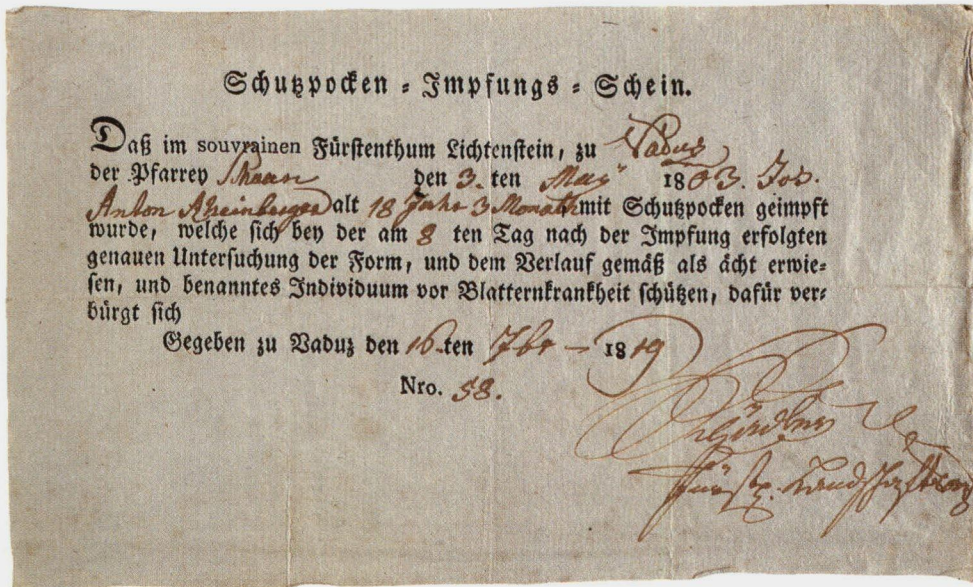 Schutzpocken = Impfungs = Schein.
Daß im souvrainen Fürstenthum Lichtenstein, zu Vaduz
der Pfarrey Schaan den 3. ten May 1803. Jos.
Anton Rheinberger alt 18 Jahr 3 Monath mit Schutzpocken geimpft
wurde, welche sich bey der am 8 ten Tag nach der Impfung erfolgten
genauen Untersuchung der Form, und dem Verlauf gemäß als ächt erwie=
sen, und benanntes Individuum vor Blatternkrankheit schützen, dafür ver=
bürgt sich
Gegeben zu Vaduz den 16 ten 7br – 1819
Nro. 58.
fürstl. Landschafts